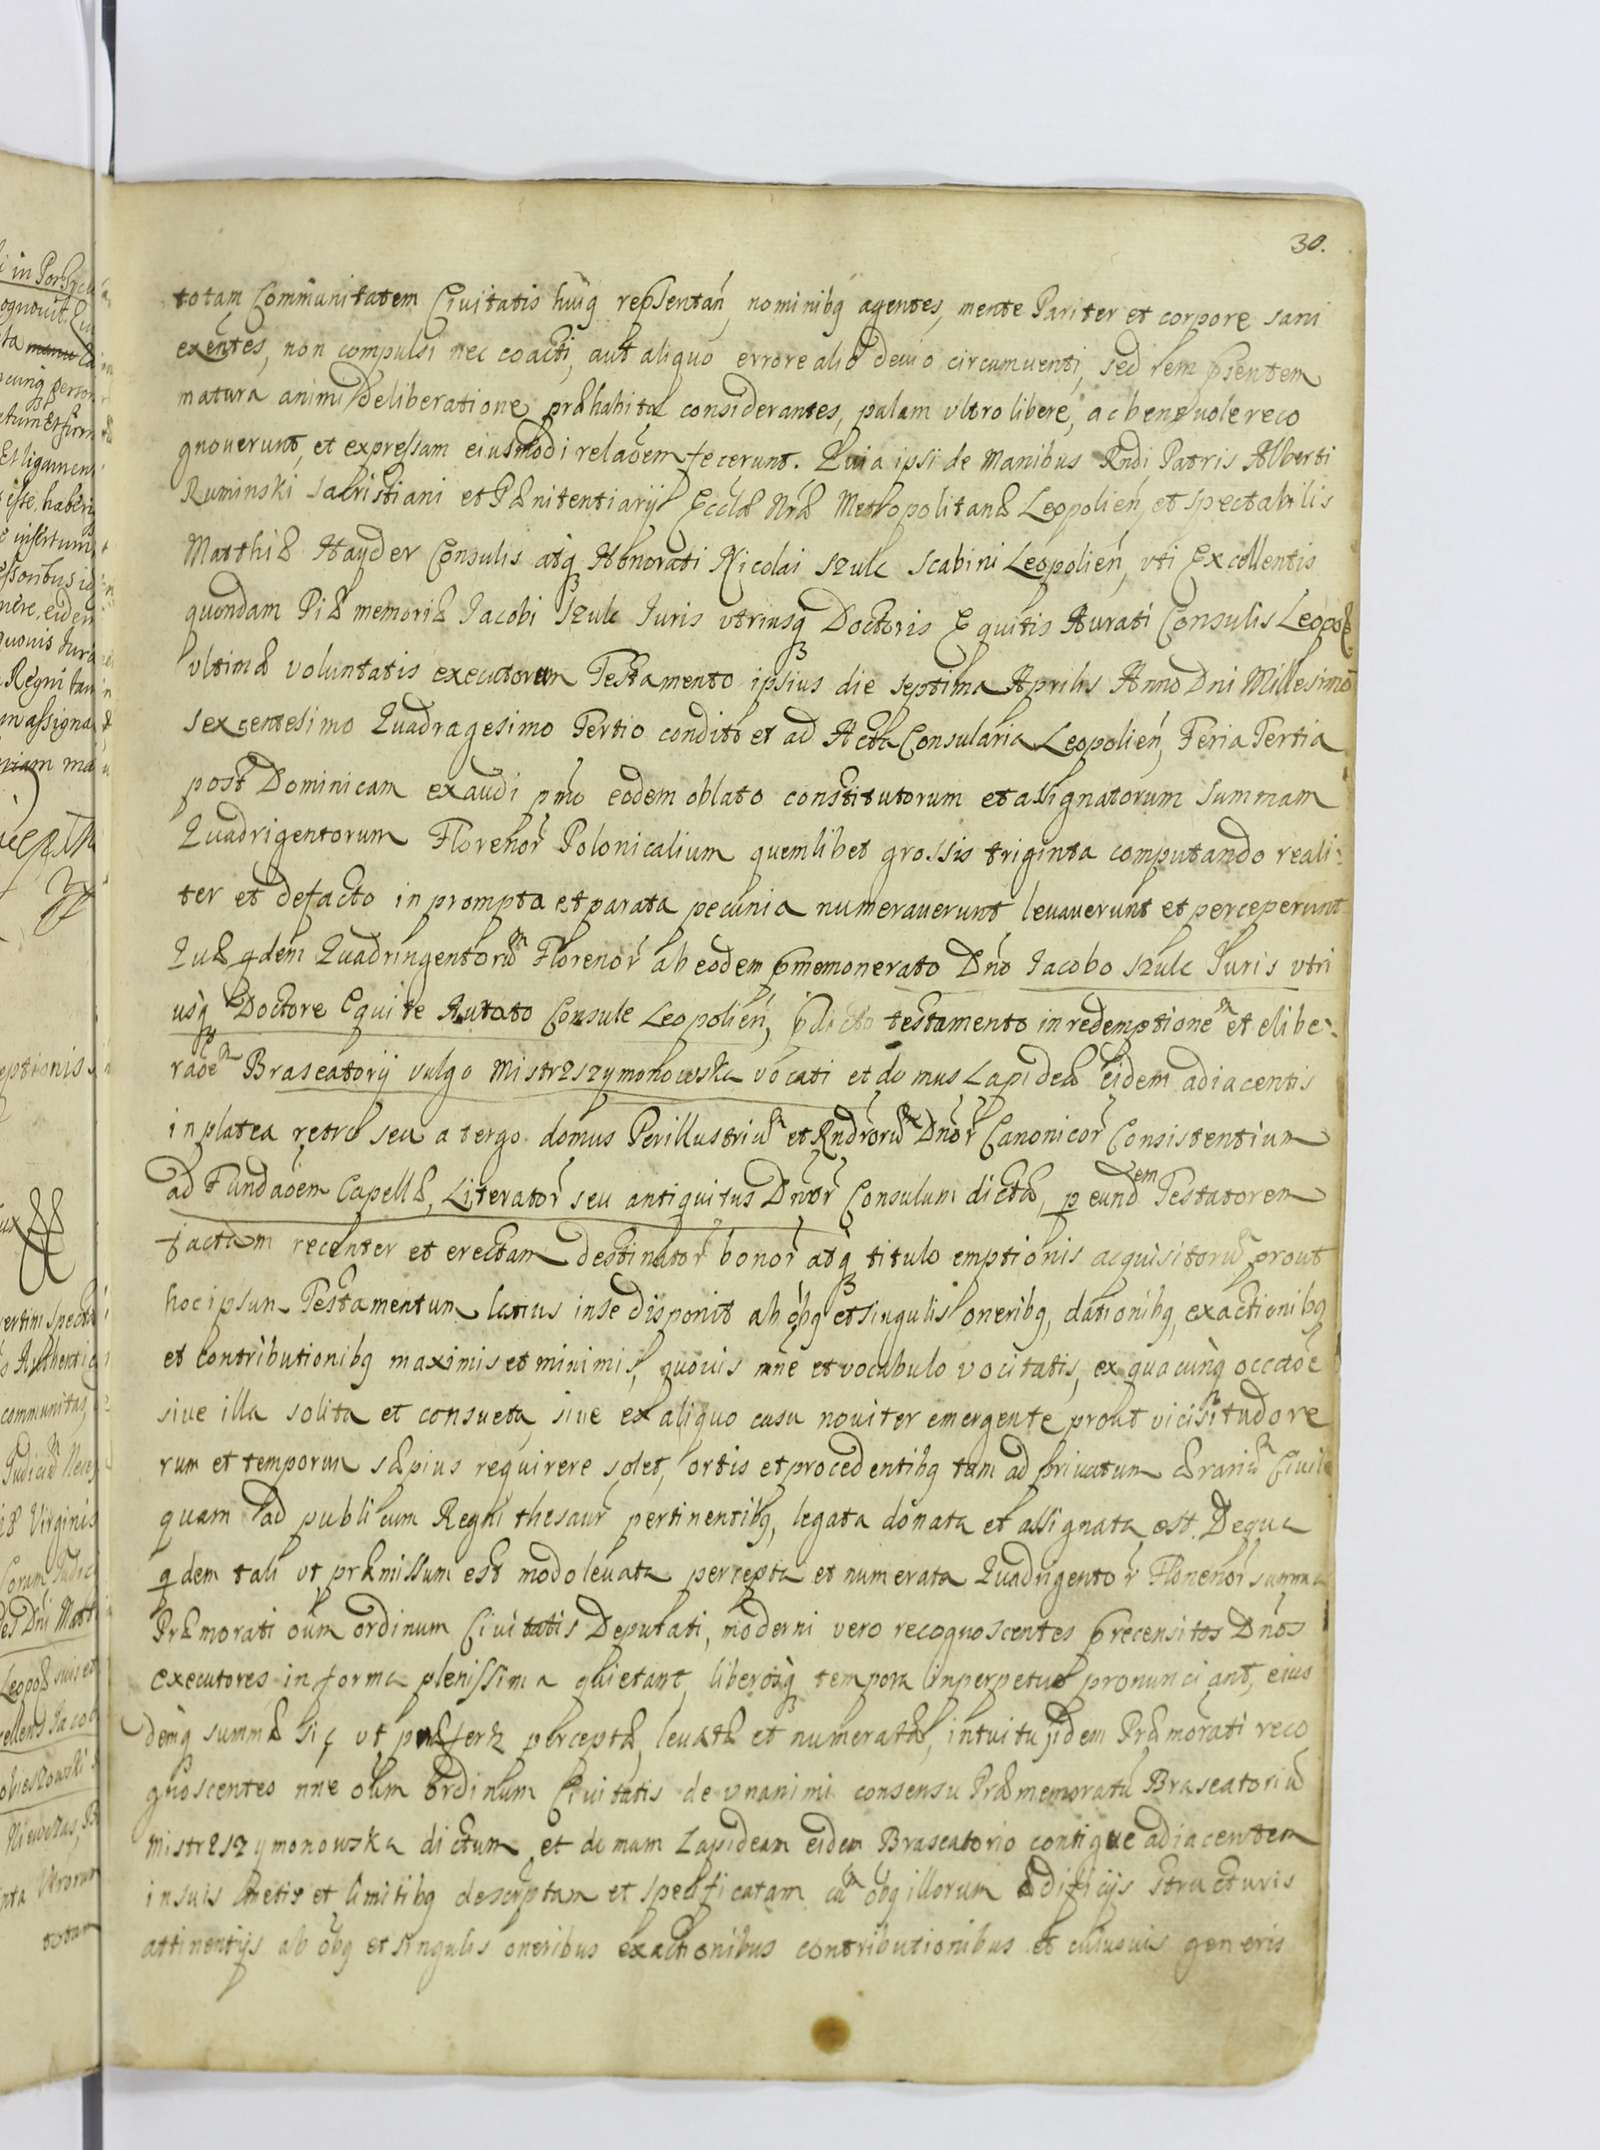 30.
totam Communitatem Civitatis huiq repsentan, nominibq agentes, mente Pariter et corpore sani
exentes, non compulsi nec coacti, aut aliquo errore alio deuio circumuenti, sed rem psentem
matura animi deliberatione præhabita considerantes, palam vltro libere, ac beneuole reco
gnouerunt, et expressam eiusmodi relaoem fecerunt. Quia ipsi de Manibus Rndi Patris Alberti
Ruminski Sacristiani et Pænitentiarij Ecclæ Nræ Metropolitanæ Leopolien, et spectabilis
Matthiæ Hayder Consulis atq Honorati Nicolai Szulc Scabini Leopolien, vti Excellentis
quondam Piæ memoriæ Jacobi Szulc Juris vtriusq Doctoris Equitis Aurati Consulis Leopoł
vltimæ voluntatis executorum Testamento ipsius die septima Aprilis Anno Dni Millesimo
sexcentesimo Quadragesimo Tertio condito et ad Acta Consularia Leopolien, Feria Tertia
post Dominicam exaudi pmo eodem oblato constitutorum et assignatorum Summam
Quadrigentorum Florenor Polonicalium quemlibet grossis triginta computando reali:
ter et defacto in prompta et parata pecunia numerauerunt leuauerunt et perceperunt
Quæ qdem Quadringentorum Florenor ab eodem pmemonerato Dno Jacobo Szulc Juris vtri
usq Doctore Equite Aurato Consule Leopolien, pdicto testamento in redemptionem et elibe:
raoem Braseatorij vulgo Mistrzszymonowska vocati et domus Lapideæ eidem adiacentis
in platea retro seu a tergo domus Perillustrium et Rndroru Dnor Canonicor Consistentium
ad Fundaoem Capellæ, Literator seu antiquitus Dnor Consulum dictæ, p eundem Testatorem
factam recenter et erectam destinator bonor atq titulo emptionis acquisitoru prout
hoc ipsum Testamentum latius in se disponit ab obq et singulis oneribq, dationibq, exactionibq
et contributionibq maximis et minimis, quouis nne et vocabulo vocitatis, ex quacunq occtoe
siue illa solita et consueta, siue ex aliquo casu nouiter emergente prout vicissitudo re
rum et temporum sæpius requirere solet, ortis et procedentibq tam ad priuatum ærarium Ciuile
quam ad publicum Regni thesaur pertinentibq, legata donata et assignata est. De qua
qdem tali vt præmissum est modo leuata percepta et numerata Quadrigentor Florenor summa
Præmorati oum ordinum Ciuitatis Deputati, moderni vero recognoscentes precensitos Dnos
executores in forma plenissima quietant, liberosq tempora inperpetuo pronunciant, eius
demq summæ sic vt præfertr perceptæ, leuatæ et numeratæ, intuitu, iidem Præmorati reco
gnoscentes nne oum ordinum Ciuitatis de vnanimi consensu Præmemoratu Braseatoriu
Mistrzszymonowska dictum et domum Lapideam eidem Braseatorio contigue adiacentem
in suis metis et limitibq descriptam et specificatam cum obq illorum ædificijs structuris
attinentijs ab obq et singulis oneribus exactionibus contributionibus et cuiusuis generis